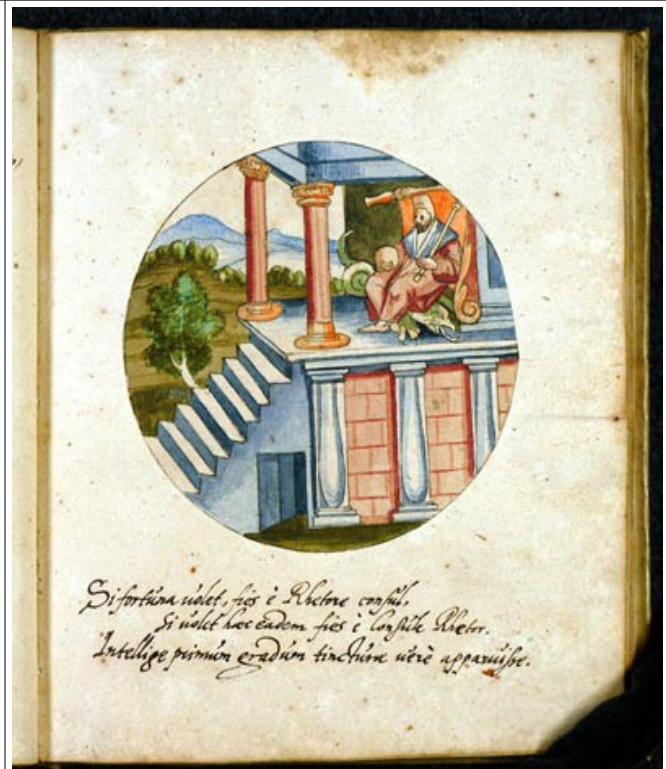 Si fortuna volet, fies è Rhetore consul,
Si volet hæc eadem fies è Consule Rhetor.
Intellige primum gradum tincturæ verè apparuisse.